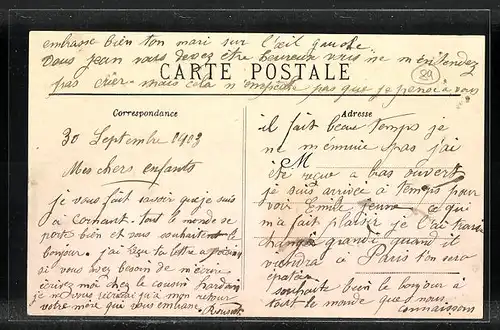 embrasse bien ton mari sur l'œil gauche
Vous jean vous devez être heureux vous ne m'entendez
pas crier mais cela n'empêche pas que je pense à vous
CARTE POSTALE
29
Correspondance
30 Septembre 1903
Mes chers enfants
je vous fait savoir que je suis
à tout le monde se
porte bien et vous souhaitent le
bonjour. j'ai reçu ta lettre a
si vous avez besoin de m'écrire
écrivez moi chez le cousin
je ne vous écrirai qu'a mon retour
votre mère qui vous embrasse
Adresse
il fait beau temps je
ne m'ennuie pas j'ai
M
été reçue a bas ouvert
je suis arrivée à temps pour
voir Emile ce qui
m'a fait plaisir je l'ai trouvé
changé grandi quand il
viendra à Paris ton sera
épatée
souhaite bien le bonjour à
tout le monde que nous
connaissons